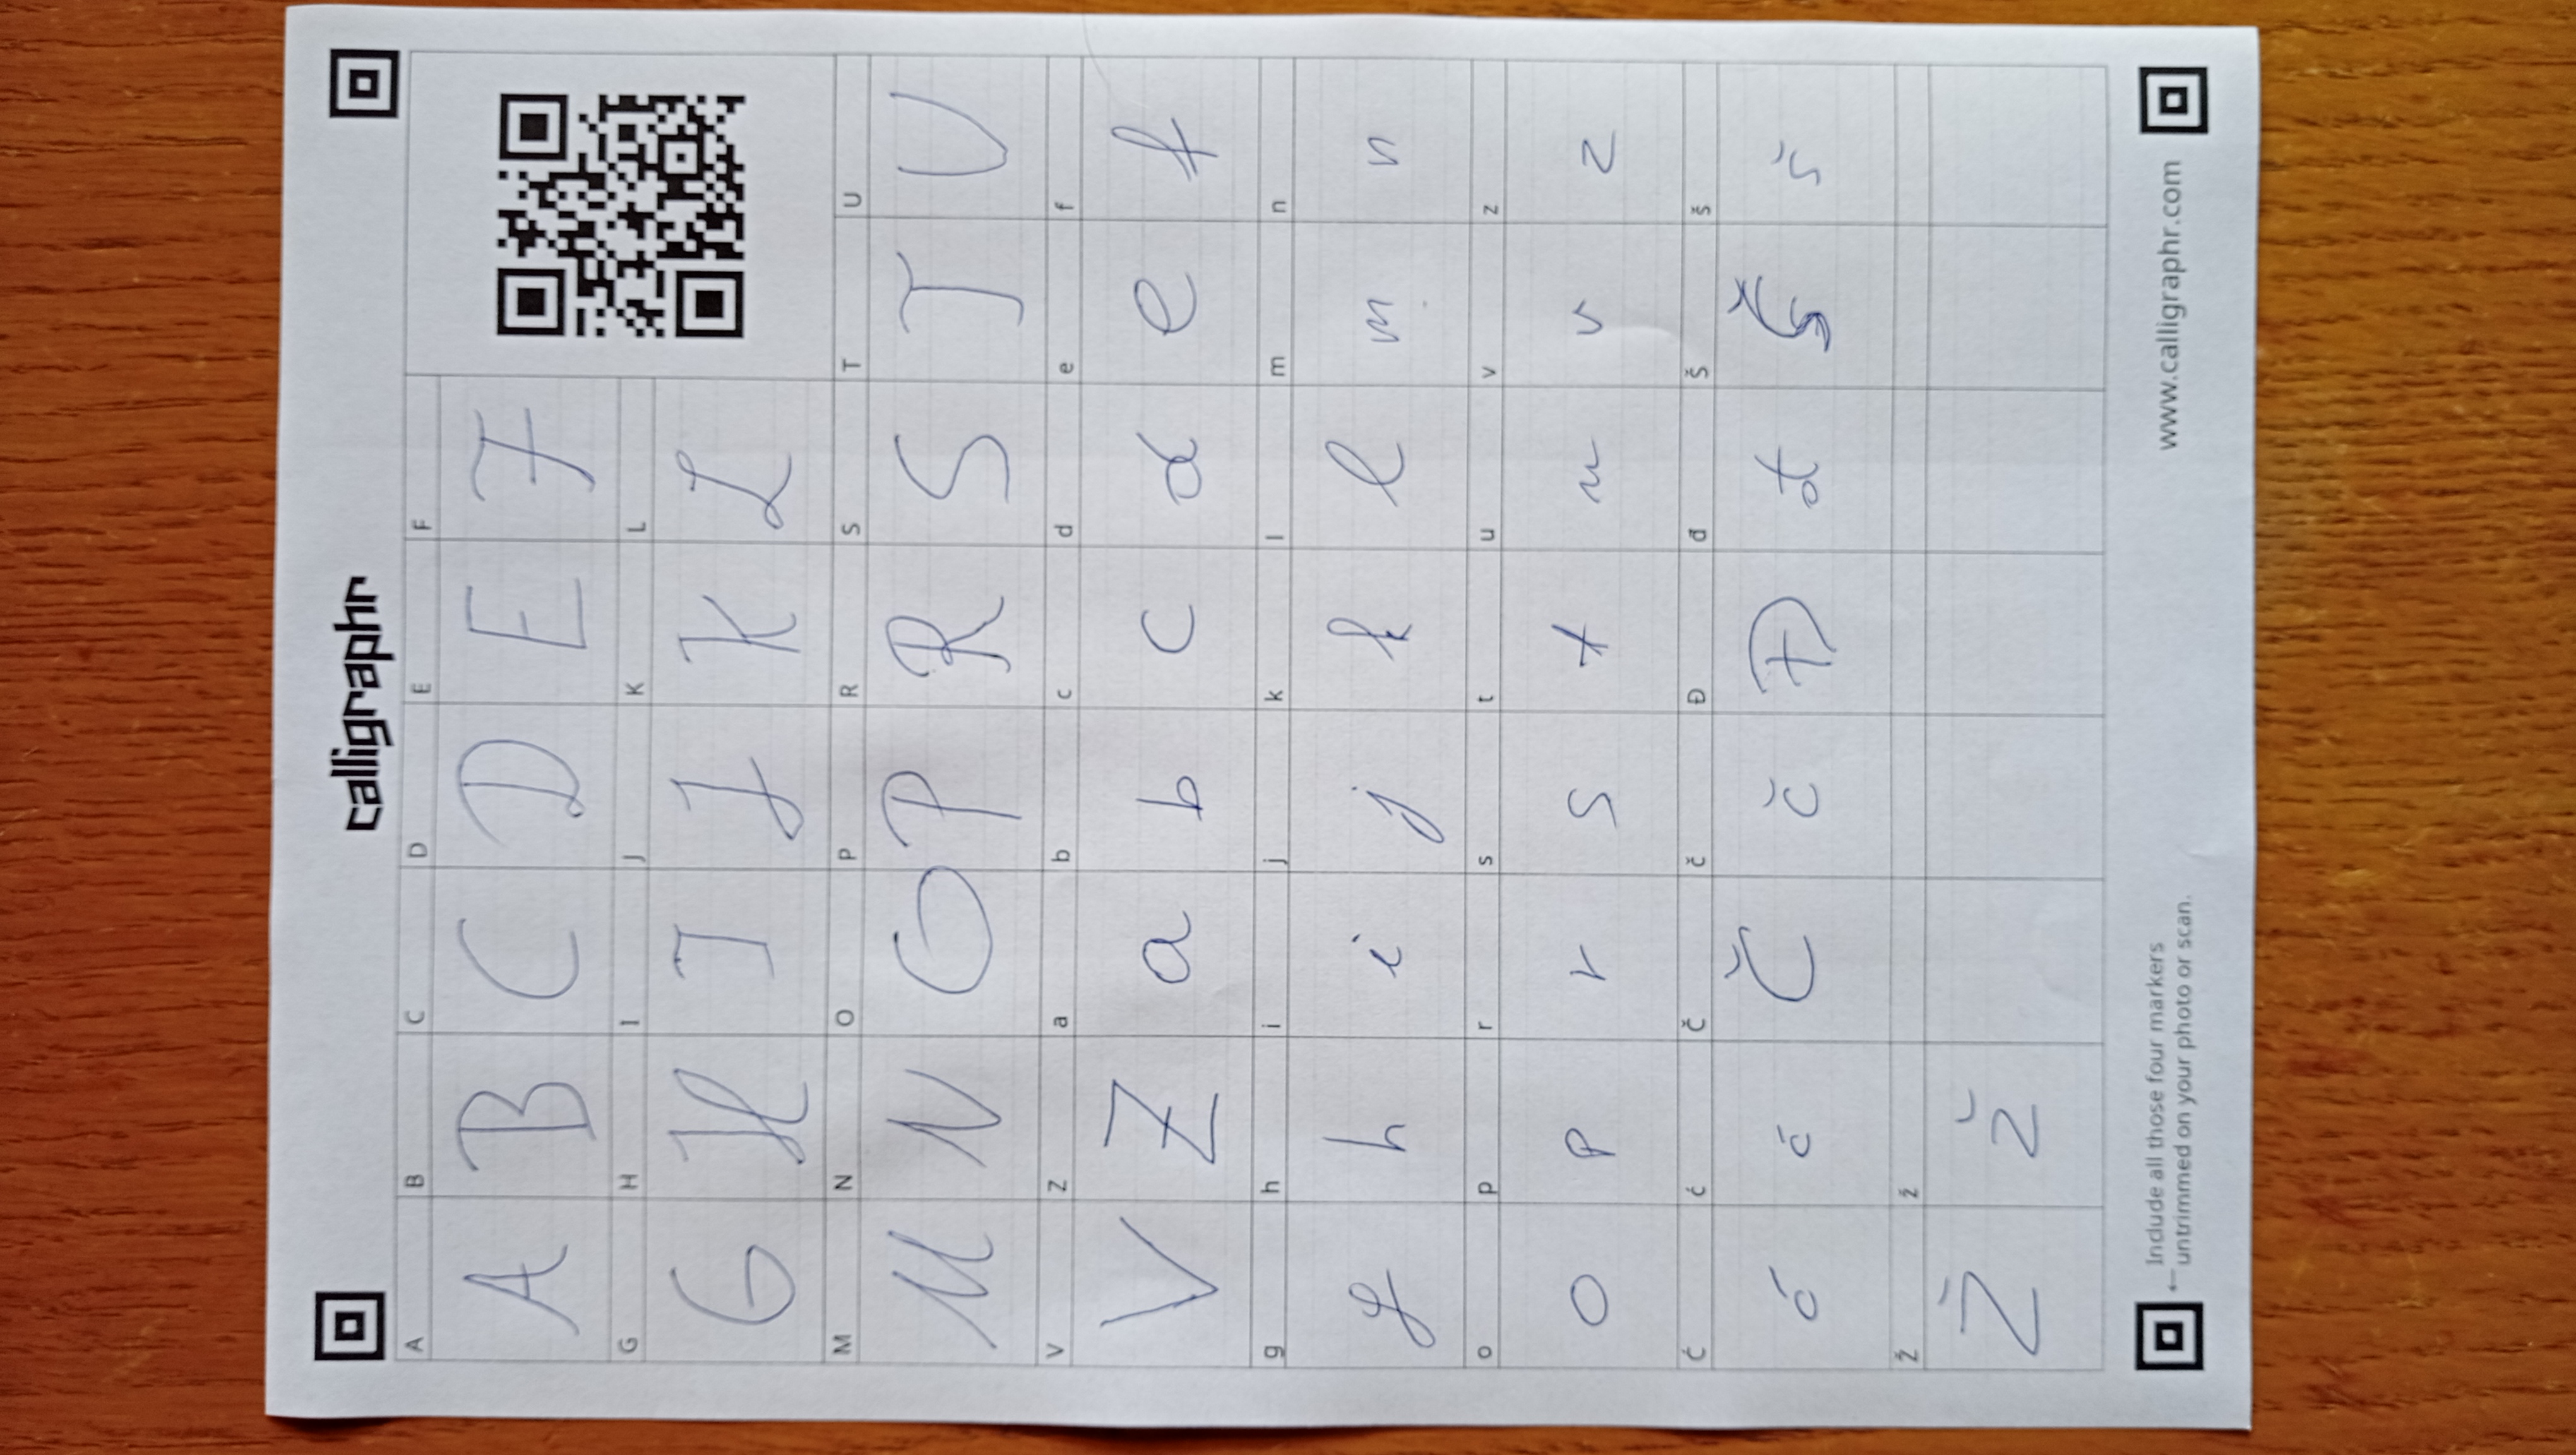 calligraphr
A B C D E F
A B C D E F
G H I J K L
G H I J K L
M N O P R S T U
M N O P R S T U
V Z a b c d e f
V Z a b c d e f
g h i j k l m n
g h i j k l m n
o p r s t u v z
o p r s t u v z
Ć ć Č č Đ đ Š š
ć ć Č č Đ đ Š š
Ž ž
Ž ž
← Include all those four markers
untrimmed on your photo or scan.
www.calligraphr.com